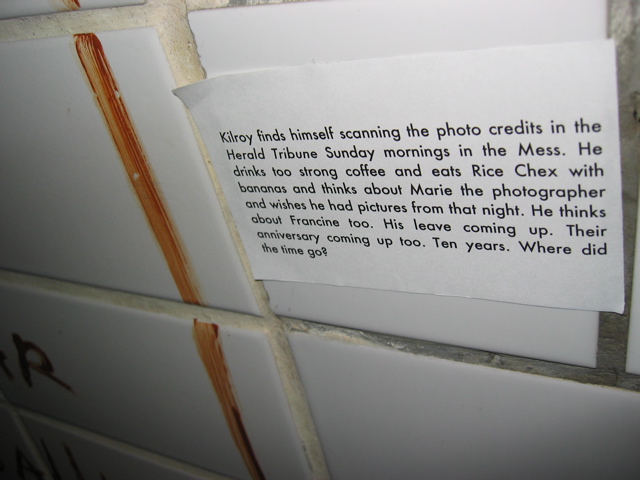 Kilroy finds himself scanning the photo credits in the
Herald Tribune Sunday mornings in the Mess. He
drinks too strong coffee and eats Rice Chex with
bananas and thinks about Marie the photographer
and wishes he had pictures from that night. He thinks
about Francine too. His leave coming up. Their
anniversary coming up too. Ten years. Where did
the time go?